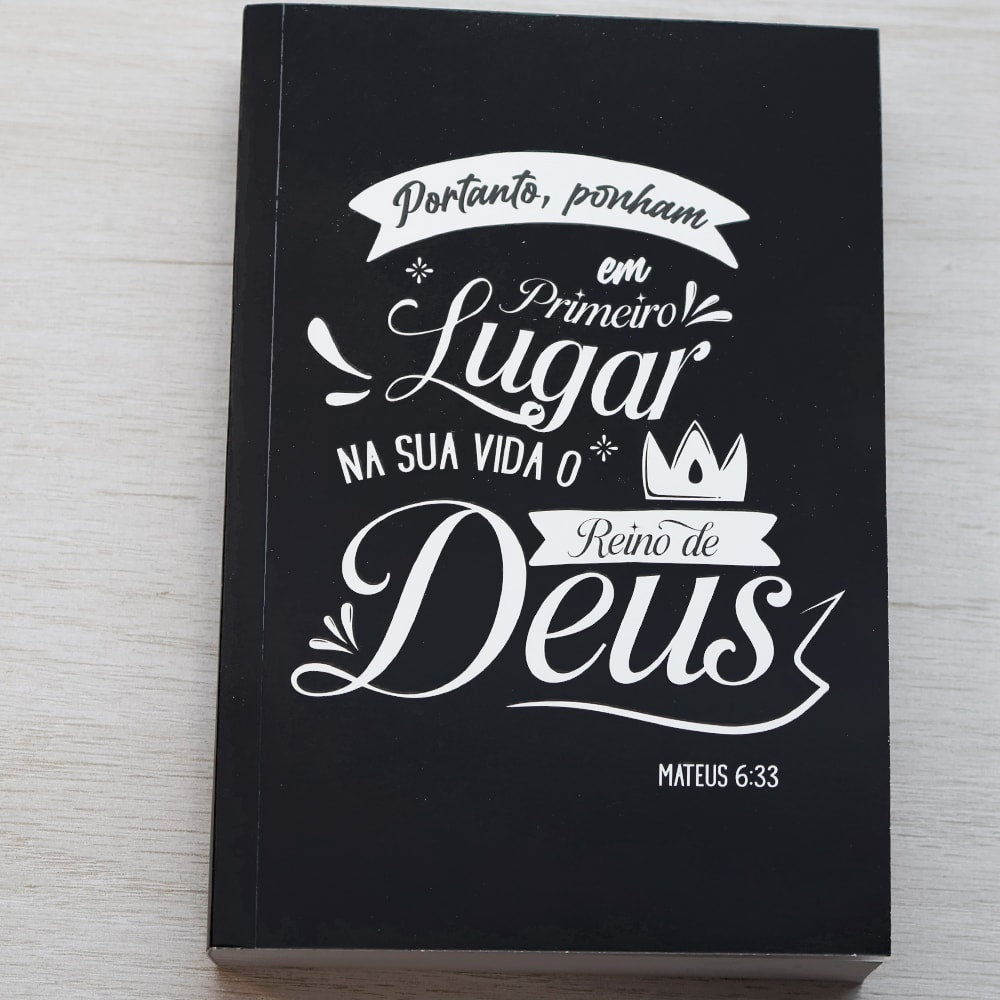 Portanto, ponham
em
Primeiro
Lugar
NA SUA VIDA O
Reino de
Deus
MATEUS 6:33